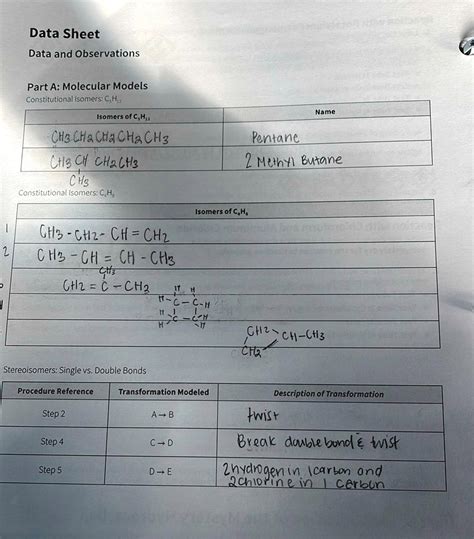 Data Sheet
Data and Observations
Part A: Molecular Models
Constitutional Isomers: C₅H₁₂
Isomers of C₅H₁₂ Name
CH3 CH2 CH2 CH2 CH3 Pentane
CH3 CH CH2 CH3 2 Methyl Butane
CH3
Constitutional Isomers: C₄H₈
Isomers of C₄H₈
1 CH3 - CH2 - CH = CH2
2 CH3 - CH = CH - CH3
CH3
CH2 = C - CH2
H H
H - C - C - H
H - C - C - H
H H
CH2 CH - CH3
CH2
Stereoisomers: Single vs. Double Bonds
Procedure Reference Transformation Modeled Description of Transformation
Step 2 A → B twist
Step 4 C → D Break double bond & twist
Step 5 D → E 2 hydrogen in 1 carbon and
2 chlorine in 1 carbon